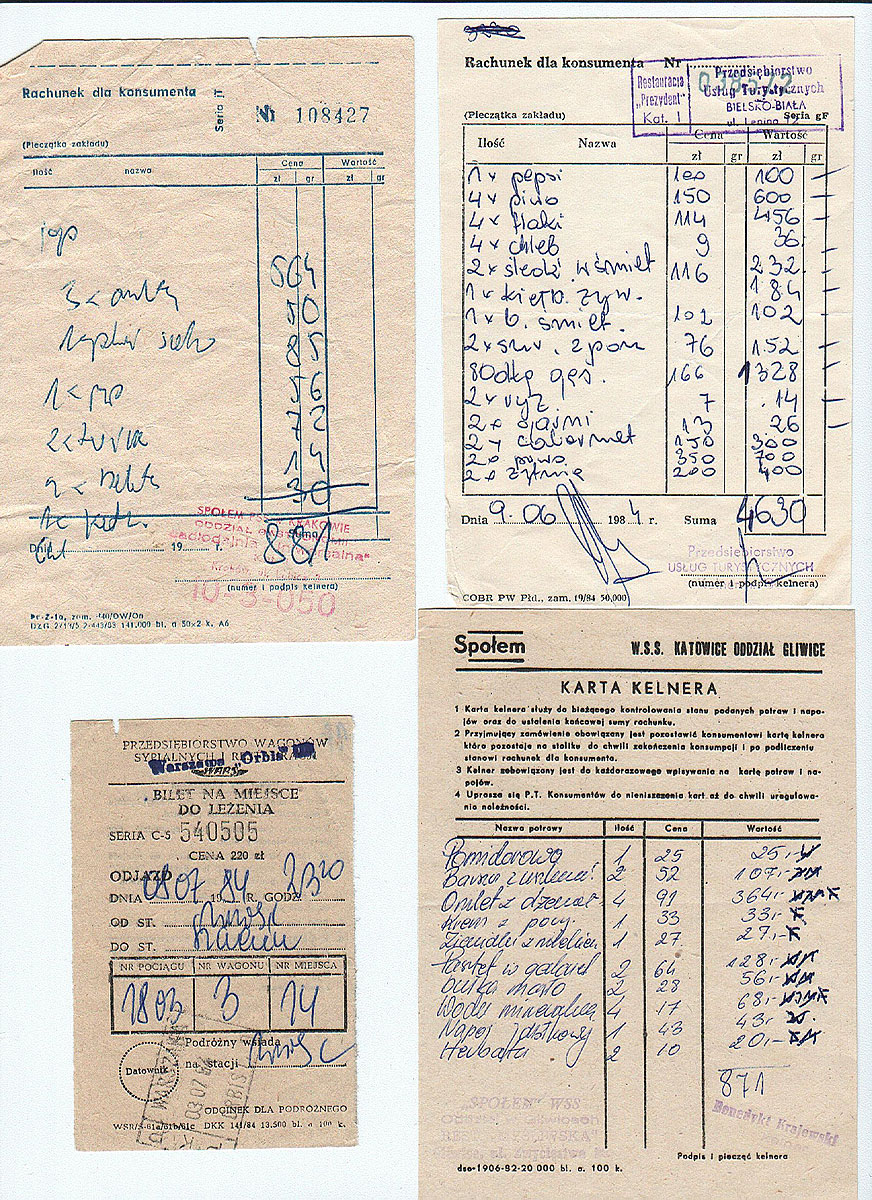 Rachunek dla konsumenta
Seria JT
Nr 108427
(Pieczątka zakładu)
Ilość nazwa Cena Wartość
zł gr zł gr
564
50
85
56
72
14
30
Dnia 19 r. Suma 881
SPOŁEM PSS KRAKOWIE
(numer i podpis kelnera)
10-8-050
Rachunek dla konsumenta Nr
(Pieczątka zakładu)
Restauracja
„Prezydent"
Kat. I
Przedsiębiorstwo
Usług Turystycznych
BIELSKO-BIAŁA
ul. Lenina 12
Seria gF
Ilość Nazwa Cena Wartość
zł gr zł gr
1 x pepsi 100 100
4 x piwo 150 600
4 x flaki 114 456
4 x chleb 9 36
2 x śledź w śmiet 116 232
1 x kiełb. żyw. 184
1 x b. śmiet. 102 102
2 x sur. z pom 76 152
80dkg gęś. 166 1328
2 x ryż 7 14
2 x 13 26
2 x cabernet 150 300
2 x 350 700
2 x żytnia 200 400
Dnia 9.06 1984 r. Suma 4630
Przedsiębiorstwo
USŁUG TURYSTYCZNYCH
(numer i podpis kelnera)
COBR PW Płd., zam. 19/84 50,000
PRZEDSIĘBIORSTWO WAGONÓW
SYPIALNYCH I
Warszawa „Orbis"
WARS
BILET NA MIEJSCE
DO LEŻENIA
SERIA C-S 540505
CENA 220 zł
ODJAZD
DNIA 08 07 1984 R. GODZ. 2320
OD ST.
DO ST.
NR POCIĄGU NR WAGONU NR MIEJSCA
1803 3 14
Podróżny wsiada
na stacji
Datownik
WARSZAWA
03 07 84
ORBIS
ODCINEK DLA PODRÓŻNEGO
WSR/S-61a/61b/61c DKK 141/84 13.500 bl. a 100 k.
Społem W.S.S. KATOWICE ODDZIAŁ GLIWICE
KARTA KELNERA
1 Karta kelnera służy do bieżącego kontrolowania stanu podanych potraw i napo-
jów oraz do ustalenia końcowej sumy rachunku.
2 Przyjmujący zamówienie obowiązany jest pozostawić konsumentowi kartę kelnera
która pozostaje na stoliku do chwili zakończenia konsumpcji i po podliczeniu
stanowi rachunek dla konsumenta.
3 Kelner zobowiązany jest do każdorazowego wpisywania na kartę potraw i na-
pojów.
4 Uprasza się P.T. Konsumentów do nieniszczenia kart aż do chwili uregulowa-
nia należności.
Nazwa potrawy Ilość Cena Wartość
Pomidorowa 1 25 25,-
2 52 107,-
Omlet z dżemem 4 91 364,-
Krem z pocz. 1 33 33,-
1 27 27,-
Pasztet w galarecie 2 64 128,-
Bułka masło 2 28 56,-
Woda mineralna 4 17 68,-
Napój jabłkowy 1 43 43,-
Herbata 2 10 20,-
871
„SPOŁEM" WSS
Benedykt Krajewski
Podpis i pieczęć kelnera
dso-1906-82-20 000 bl. a 100 k.